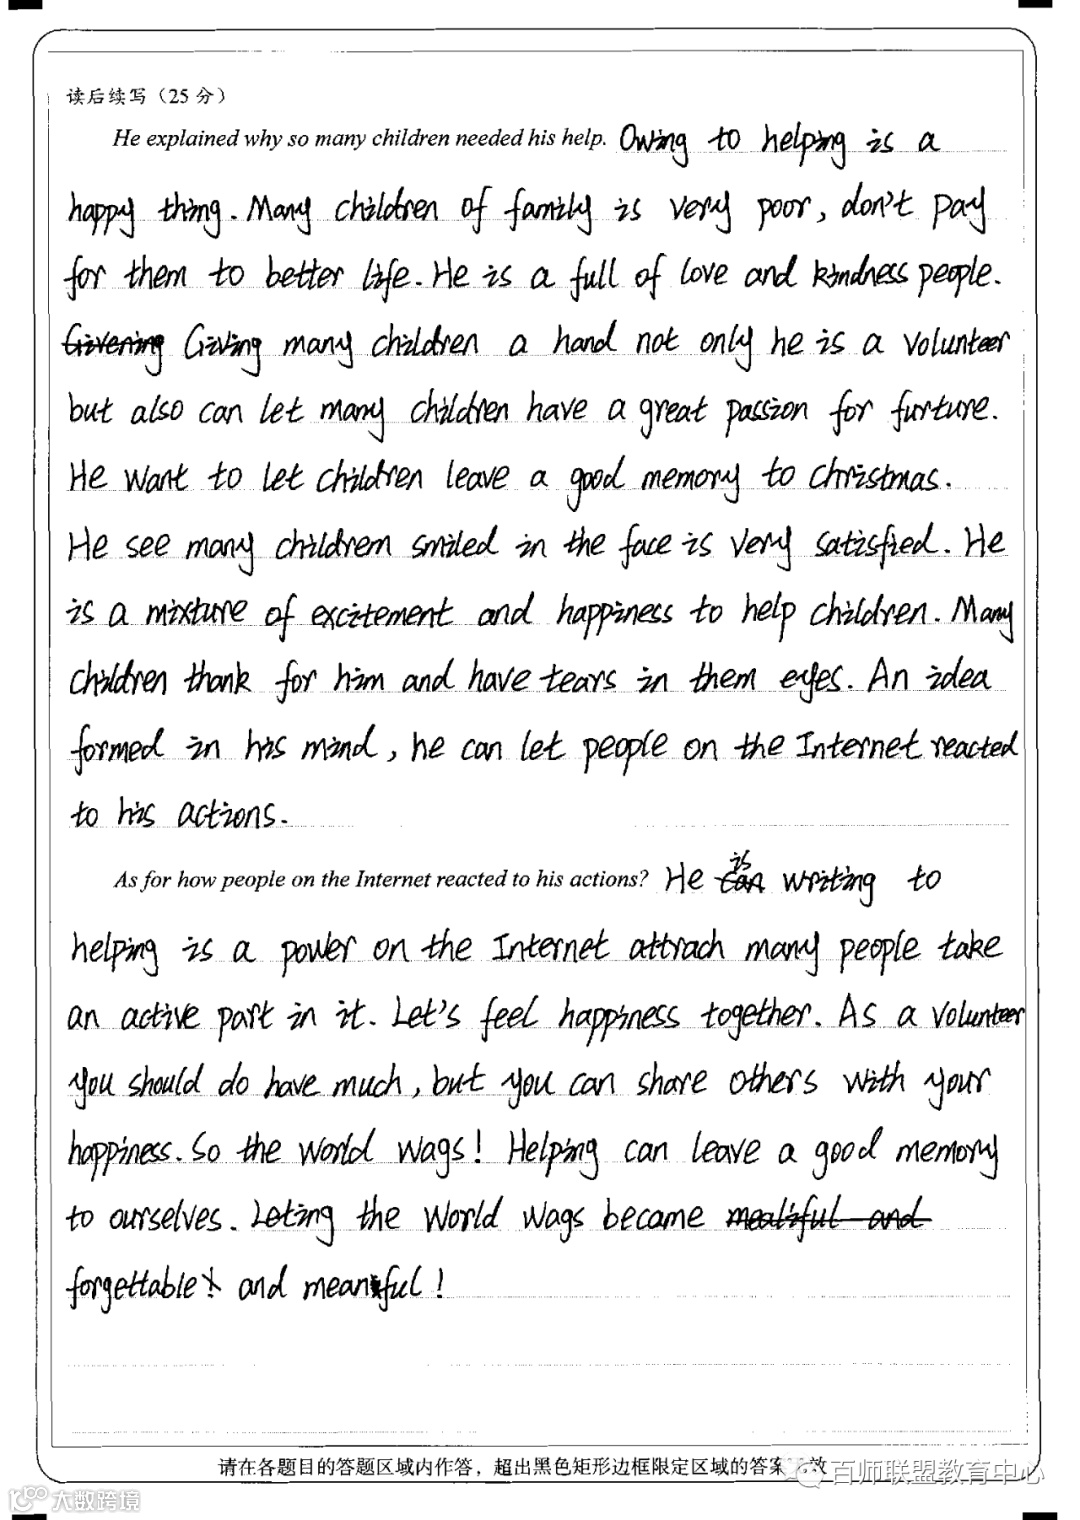 读后续写（25 分）
He explained why so many children needed his help. Owing to helping is a
happy thing. Many children of family is very poor, don't pay
for them to better life. He is a full of love and kindness people.
Givening Giving many children a hand not only he is a volunteer
but also can let many children have a great passion for furture.
He want to let children leave a good memory to christmas.
He see many children smiled in the face is very satisfied. He
is a mixture of excitement and happiness to help children. Many
children thank for him and have tears in them eyes. An idea
formed in his mind, he can let people on the Internet reacted
to his actions.
is
As for how people on the Internet reacted to his actions? He can writing to
helping is a power on the Internet attrach many people take
an active part in it. Let's feel happiness together. As a volunteer
you should do have much, but you can share others with your
happiness. So the world wags! Helping can leave a good memory
to ourselves. Leting the world wags became mealiful and
forgettable! and meanful!
请在各题目的答题区域内作答，超出黑色矩形边框限定区域的答案无效
百师联盟教育中心
大数跨境